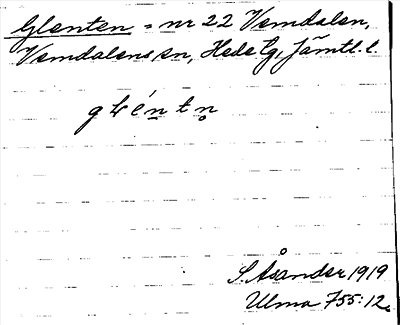 Glenten = nr 22 Vemdalen,
Vemdalens sn, Hede tg, Jämtl. l.
g l é n t n̥
S. Åsander 1919
Ulma 755:12.